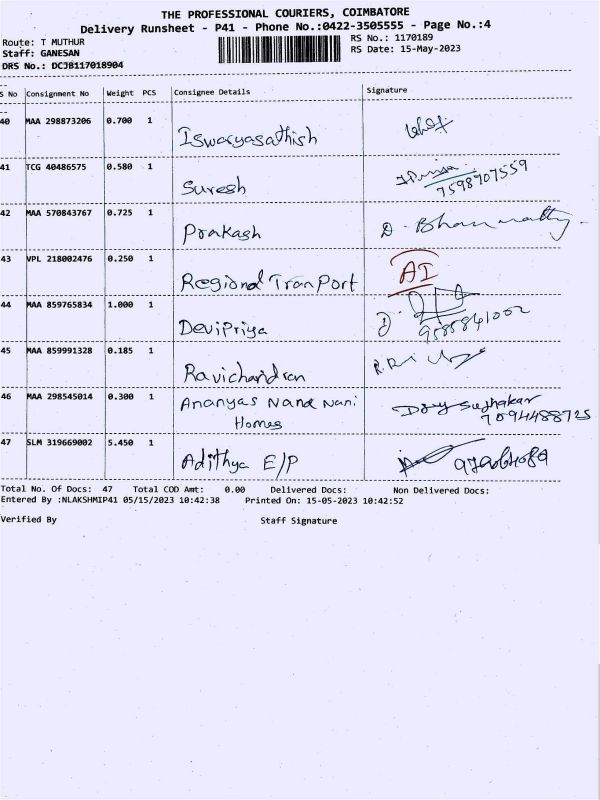 THE PROFESSIONAL COURIERS, COIMBATORE
Delivery Runsheet - P41 - Phone No.:0422-3505555 - Page No.:4
Route: T MUTHUR
RS No.: 1170189
Staff: GANESAN
RS Date: 15-May-2023
DRS No.: DCJB117018904
S No Consignment No Weight PCS Consignee Details Signature
40 MAA 298873206 0.700 1 Iswaryasathish
41 TCG 40486575 0.580 1 Suresh 7598907559
42 MAA 570843767 0.725 1 Prakash D.
43 VPL 218002476 0.250 1 Regional Tranport AI
44 MAA 859765834 1.000 1 DeviPriya D.
45 MAA 859991328 0.185 1 Ravichandran
46 MAA 298545014 0.300 1 Ananyas Nand Nani
Homes
7094488725
47 SLM 319669002 5.450 1 Adithya E/P
Total No. Of Docs: 47 Total COD Amt: 0.00 Delivered Docs: Non Delivered Docs:
Entered By :NLAKSHMIP41 05/15/2023 10:42:38 Printed On: 15-05-2023 10:42:52
Verified By Staff Signature